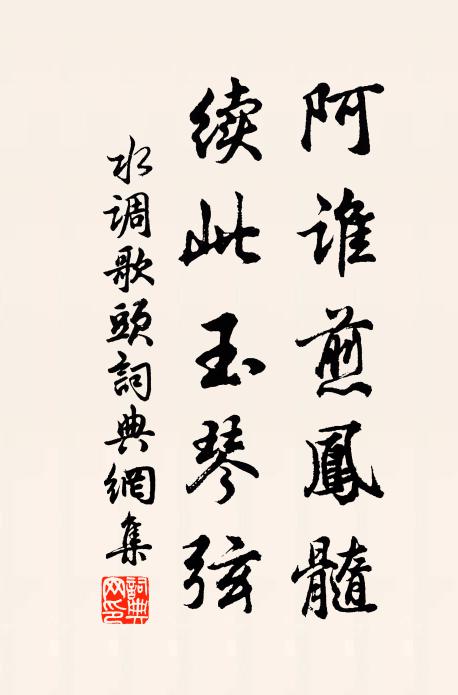 阿谁煎鳳髓
续此玉琴弦
水调歌頭詞典網集
詞典网印